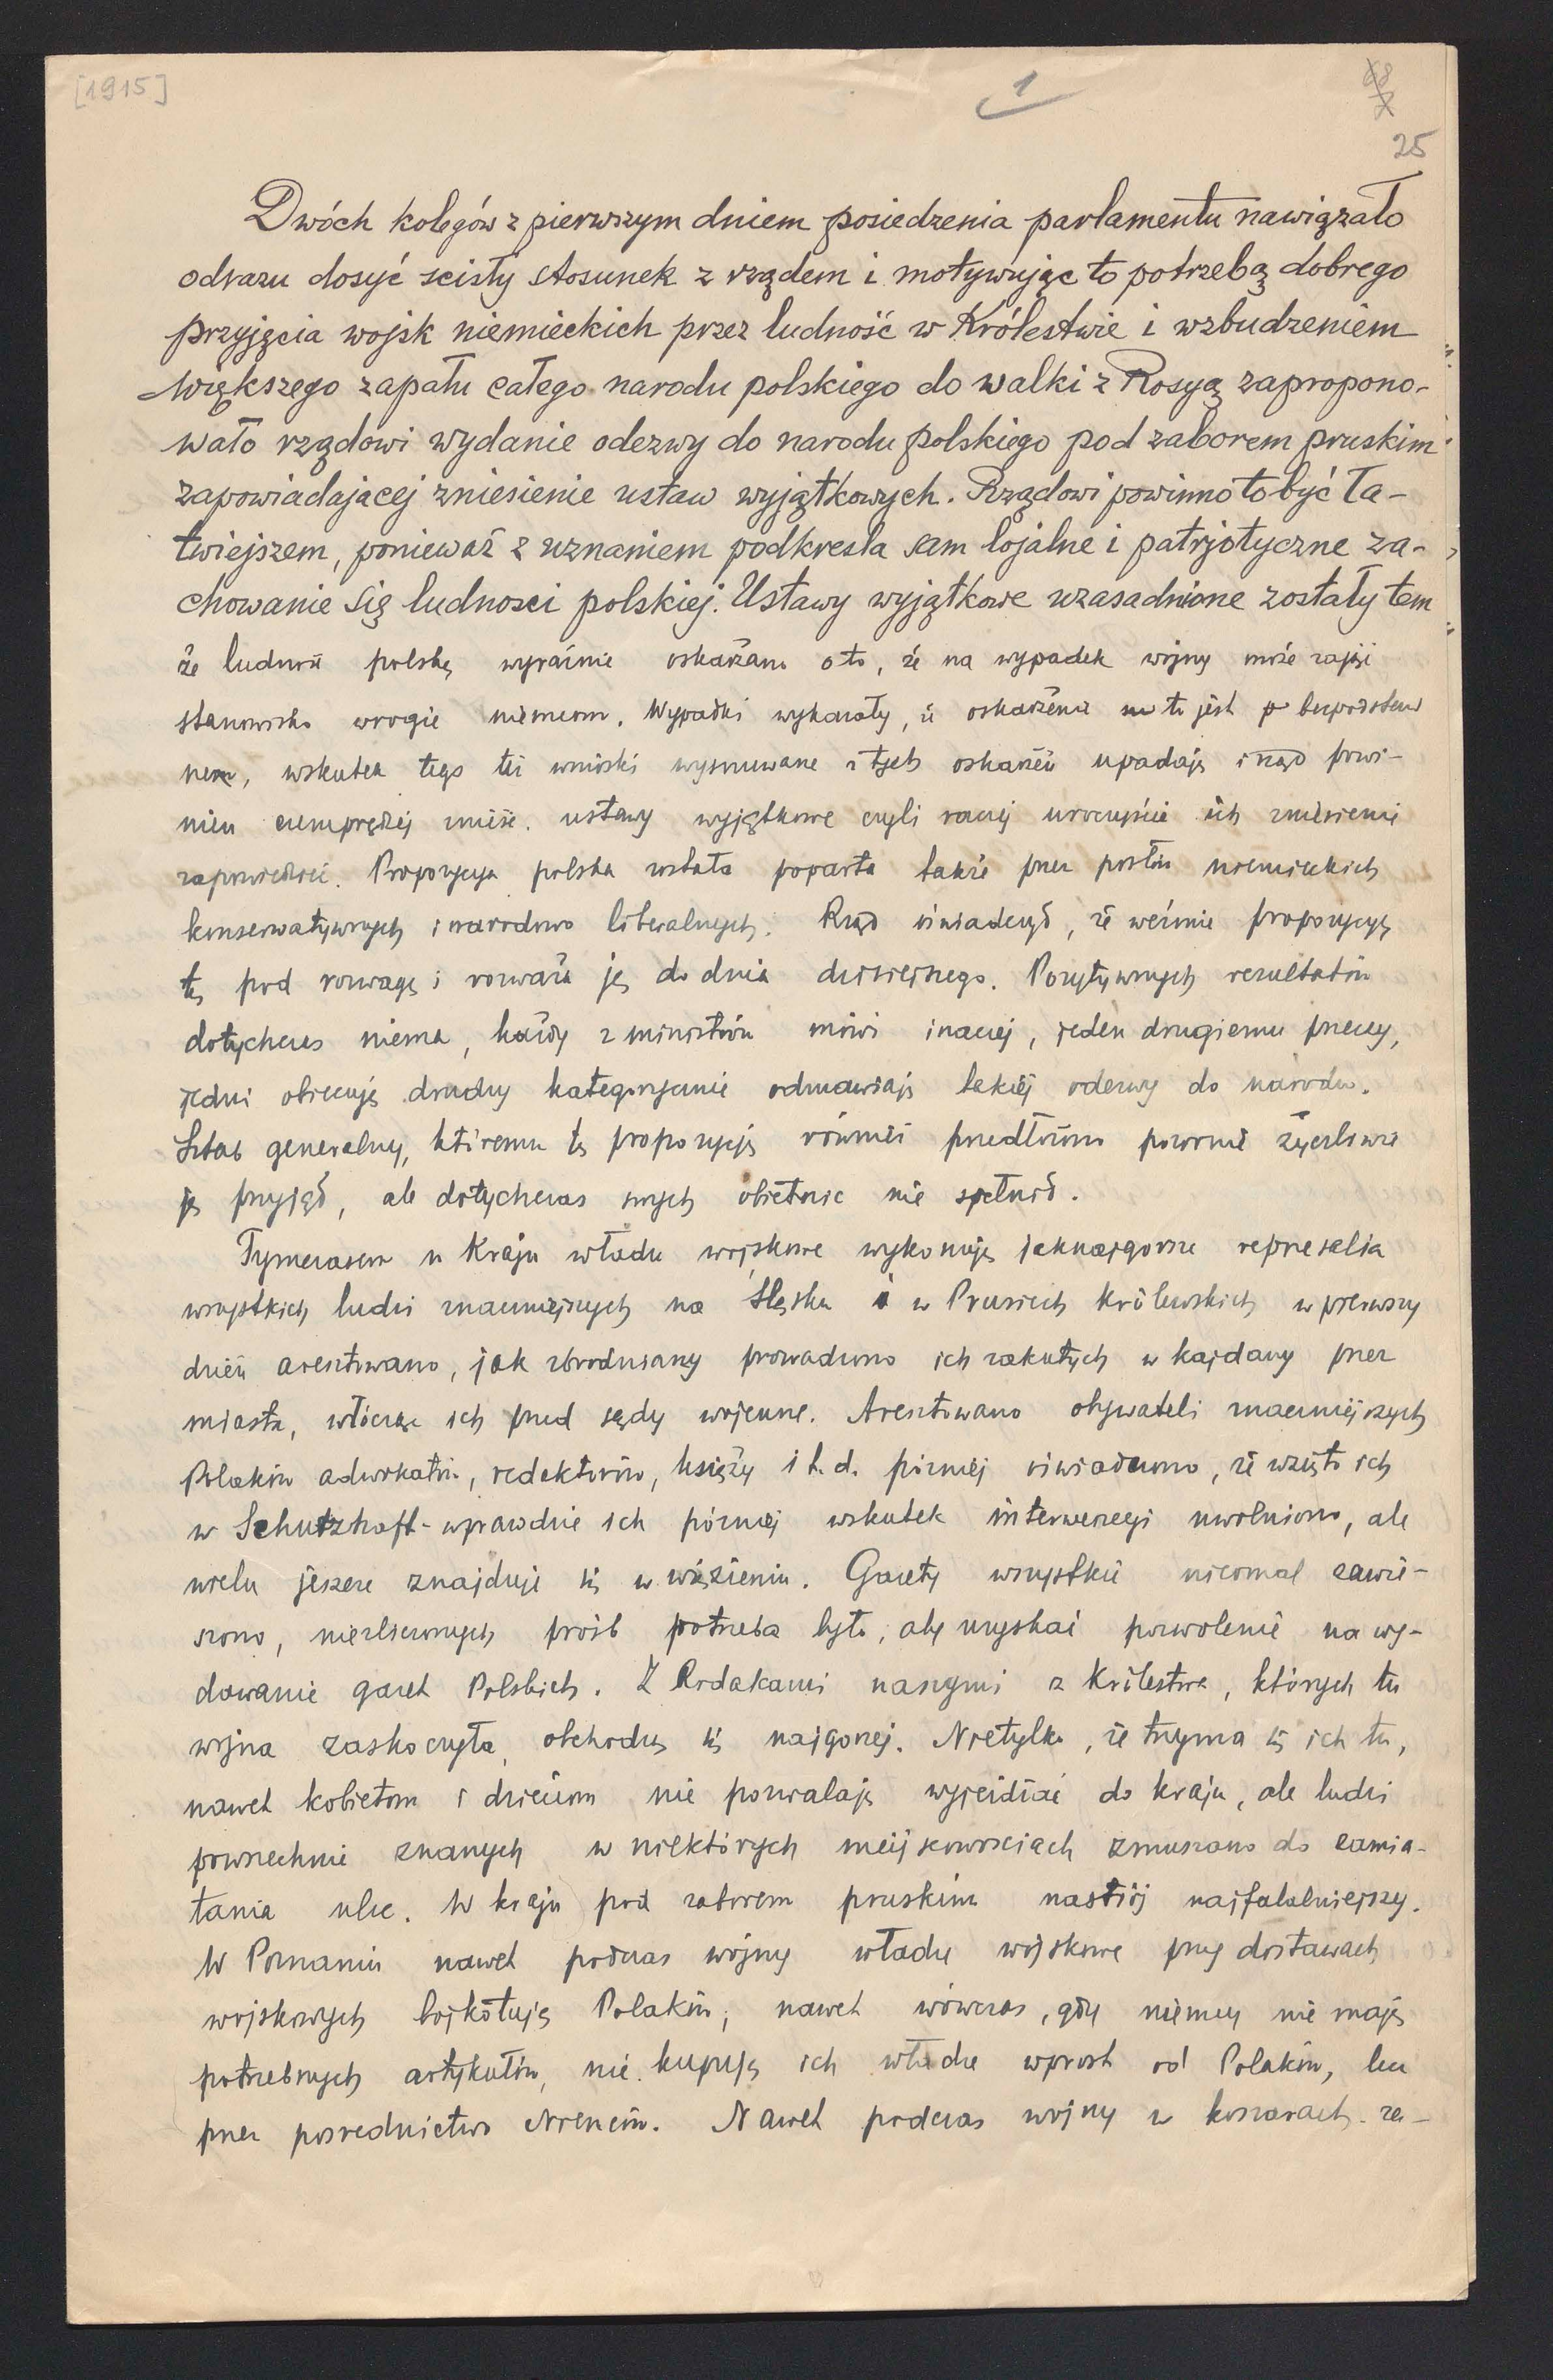 [1915]
1
68
25
Dwóch kolegów z pierwszym dniem posiedzenia parlamentu nawiązało
odrazu dosyć scisły stosunek z rządem i motywując to potrzebą dobrego
przyjęcia wojsk niemieckich przez ludność w Królestwie i wzbudzeniem
większego zapału całego narodu polskiego do walki z Rosyą zapropono-
wało rządowi wydanie odezwy do narodu polskiego pod zaborem pruskim
zapowiadającej zniesienie ustaw wyjątkowych. Rządowi powinno to być ła-
twiejszem, ponieważ z uznaniem podkresla sam lojalne i patrjotyczne za-
chowanie się ludnosci polskiej. Ustawy wyjątkowe uzasadnione zostały tem
że ludność polską wyraźnie oskarżano o to, że na wypadek wojny może zająć
stanowisko wrogie niemcom. Wypadki wykazały, iż oskarżenie to jest bezpodstaw
nem, wskutek tego też wnioski wysnuwane z tych oskarżeń upadają i rząd powi-
nien czemprędzej znieść ustawy wyjątkowe czyli raczej uroczyście ich zniesienie
zapowiedzieć. Propozycya polska została poparta także przez posłów niemieckich
konserwatywnych i narodowo liberalnych. Rząd oświadczył, że weźmie propozycyę
tę pod rozwagę i rozważa ją do dnia dzisiejszego. Pozytywnych rezultatów
dotychczas niema, każdy z ministrów mówi inaczej, jeden drugiemu przeczy,
jedni obiecują drudzy kategorycznie odmawiają takiej odezwy do narodu.
Sztab generalny, któremu tę propozycję również przedłożono pozornie życzliwie
ją przyjął, ale dotychczas swych obietnic nie spełnił.
Tymczasem w Kraju władze wojskowe wykonują jaknajgorsze represalia
wszystkich ludzi znaczniejszych na Śląsku i w Prusiech królewskich w pierwszy
dzień aresztowano, jak zbrodniarzy prowadzono ich zakutych w kajdany przez
miasta, włócząc ich przed sądy wojenne. Aresztowano obywateli znaczniejszych
Polaków adwokatów, redaktorów, księży i t. d. później oświadczono, że wzięto ich
w Schutzhaft - wprawdzie ich później wskutek interwencyi uwolniono, ale
wielu jeszcze znajduje się w więzieniu. Gazety wszystkie nieomal zawie-
szono, niezliczonych próśb potrzeba było, aby uzyskać pozwolenie na wy-
dawanie gazet Polskich. Z Rodakami naszymi z Królestwa, których tu
wojna zaskoczyła, obchodzą się najgorzej. Nietylko, że trzyma się ich tu,
nawet kobietom i dzieciom nie pozwalają wyjeżdżać do kraju, ale ludzi
powszechnie znanych w niektórych miejscowosciach zmuszano do zamia-
tania ulic. W kraju pod zaborem pruskim nastrój najfatalniejszy.
W Poznaniu nawet podczas wojny władze wojskowe przy dostawach
wojskowych bojkotują Polaków, nawet wówczas, gdy niemcy nie mają
potrzebnych artykułów, nie kupują ich władze wprost od Polaków, lecz
przez posrednictwo Niemców. Nawet podczas wojny w koszarach za-